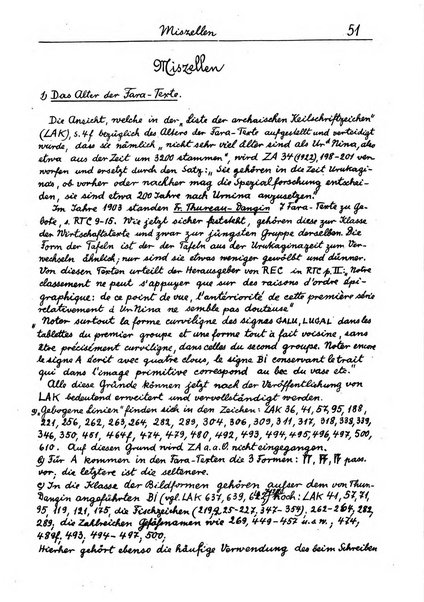 Miszellen 51
Miszellen
1) Das Alter der Fara-Texte.
Die Ansicht, welche in der „Liste der archaischen Keilschriftzeichen“
(LAK), s. 4f bezüglich des Alters der Fara-Texte aufgestellt und verteidigt
wurde, dass sie nämlich „nicht sehr viel älter sind als Ur-Nina, also
etwa aus der Zeit um 3200 stammen“, wird ZA 34 (1922), 198-201 ver-
worfen und ersetzt durch den Satz: „Sie gehören in die Zeit Urukagi-
nas, ob vorher oder nachher mag die Spezialforschung entschei-
den, sie sind etwa 200 Jahre nach Urnina anzusetzen.“
Im Jahre 1903 standen Fr. Thureau-Dangin 7 Fara-Texte zu Ge-
bote, s. RTC 9-15. Wie jetzt sicher feststeht, gehören diese zur Klasse
der Wirtschaftstexte und zwar zur jüngsten Gruppe derselben. Die
Form der Tafeln ist der der Tafeln aus der Urukaginazeit zum Ver-
wechseln ähnlich; nur sind sie etwas weniger gewölbt und dünner.
Von diesen Texten urteilt der Herausgeber von REC in RTC p. II: „Notre
classement ne peut s'appuyer que sur des raisons d'ordre épi-
graphique: de ce point de vue, l'antériorité de cette première série
relativement à Ur Nina ne semble pas douteuse“
„Noter surtout la forme curviligne des signes GALU, LUGAL dans les
tablettes du premier groupe et une forme tout à fait voisine, sans
être précisément curviligne, dans celles du second groupe. Noter encore
le signe A écrit avec quatre clous, le signe BI conservant le trait
qui dans l'image primitive correspond au bec du vase etc.“
Alle diese Gründe können jetzt nach der Veröffentlichung von
LAK bedeutend erweitert und vervollständigt werden.
a) „Gebogene Linien“ finden sich in den Zeichen: LAK 36, 41, 57, 95, 188,
221, 256, 262, 263, 264, 282, 283, 304, 306, 309, 311, 317, 318, 338, 339,
346, 350, 461, 464f, 474, 479, 480, 492, 493, 494, 495, 496, 497, 500,
610. Auf diesen Grund wird ZA a.a.O. nicht eingegangen.
b) Für A kommen in den Fara-Texten die 3 Formen: pass.
vor, die letztere ist die seltenere.
c) In die Klasse der Bildformen gehören ausser dem von Thur.-
Dangin angeführten BI (vgl. LAK 637, 639, noch: LAK 41, 57, 71,
95, 119, 121, 175, die Fischzeichen (219, 225-227, 347-354), 262-264, 282,
289, die zahlreichen Gefäßnamen wie 269, 449-457 u.a.m., 474,
489f, 493, 494-497, 500,
Hierher gehört ebenso die häufige Verwendung des beim Schreiben